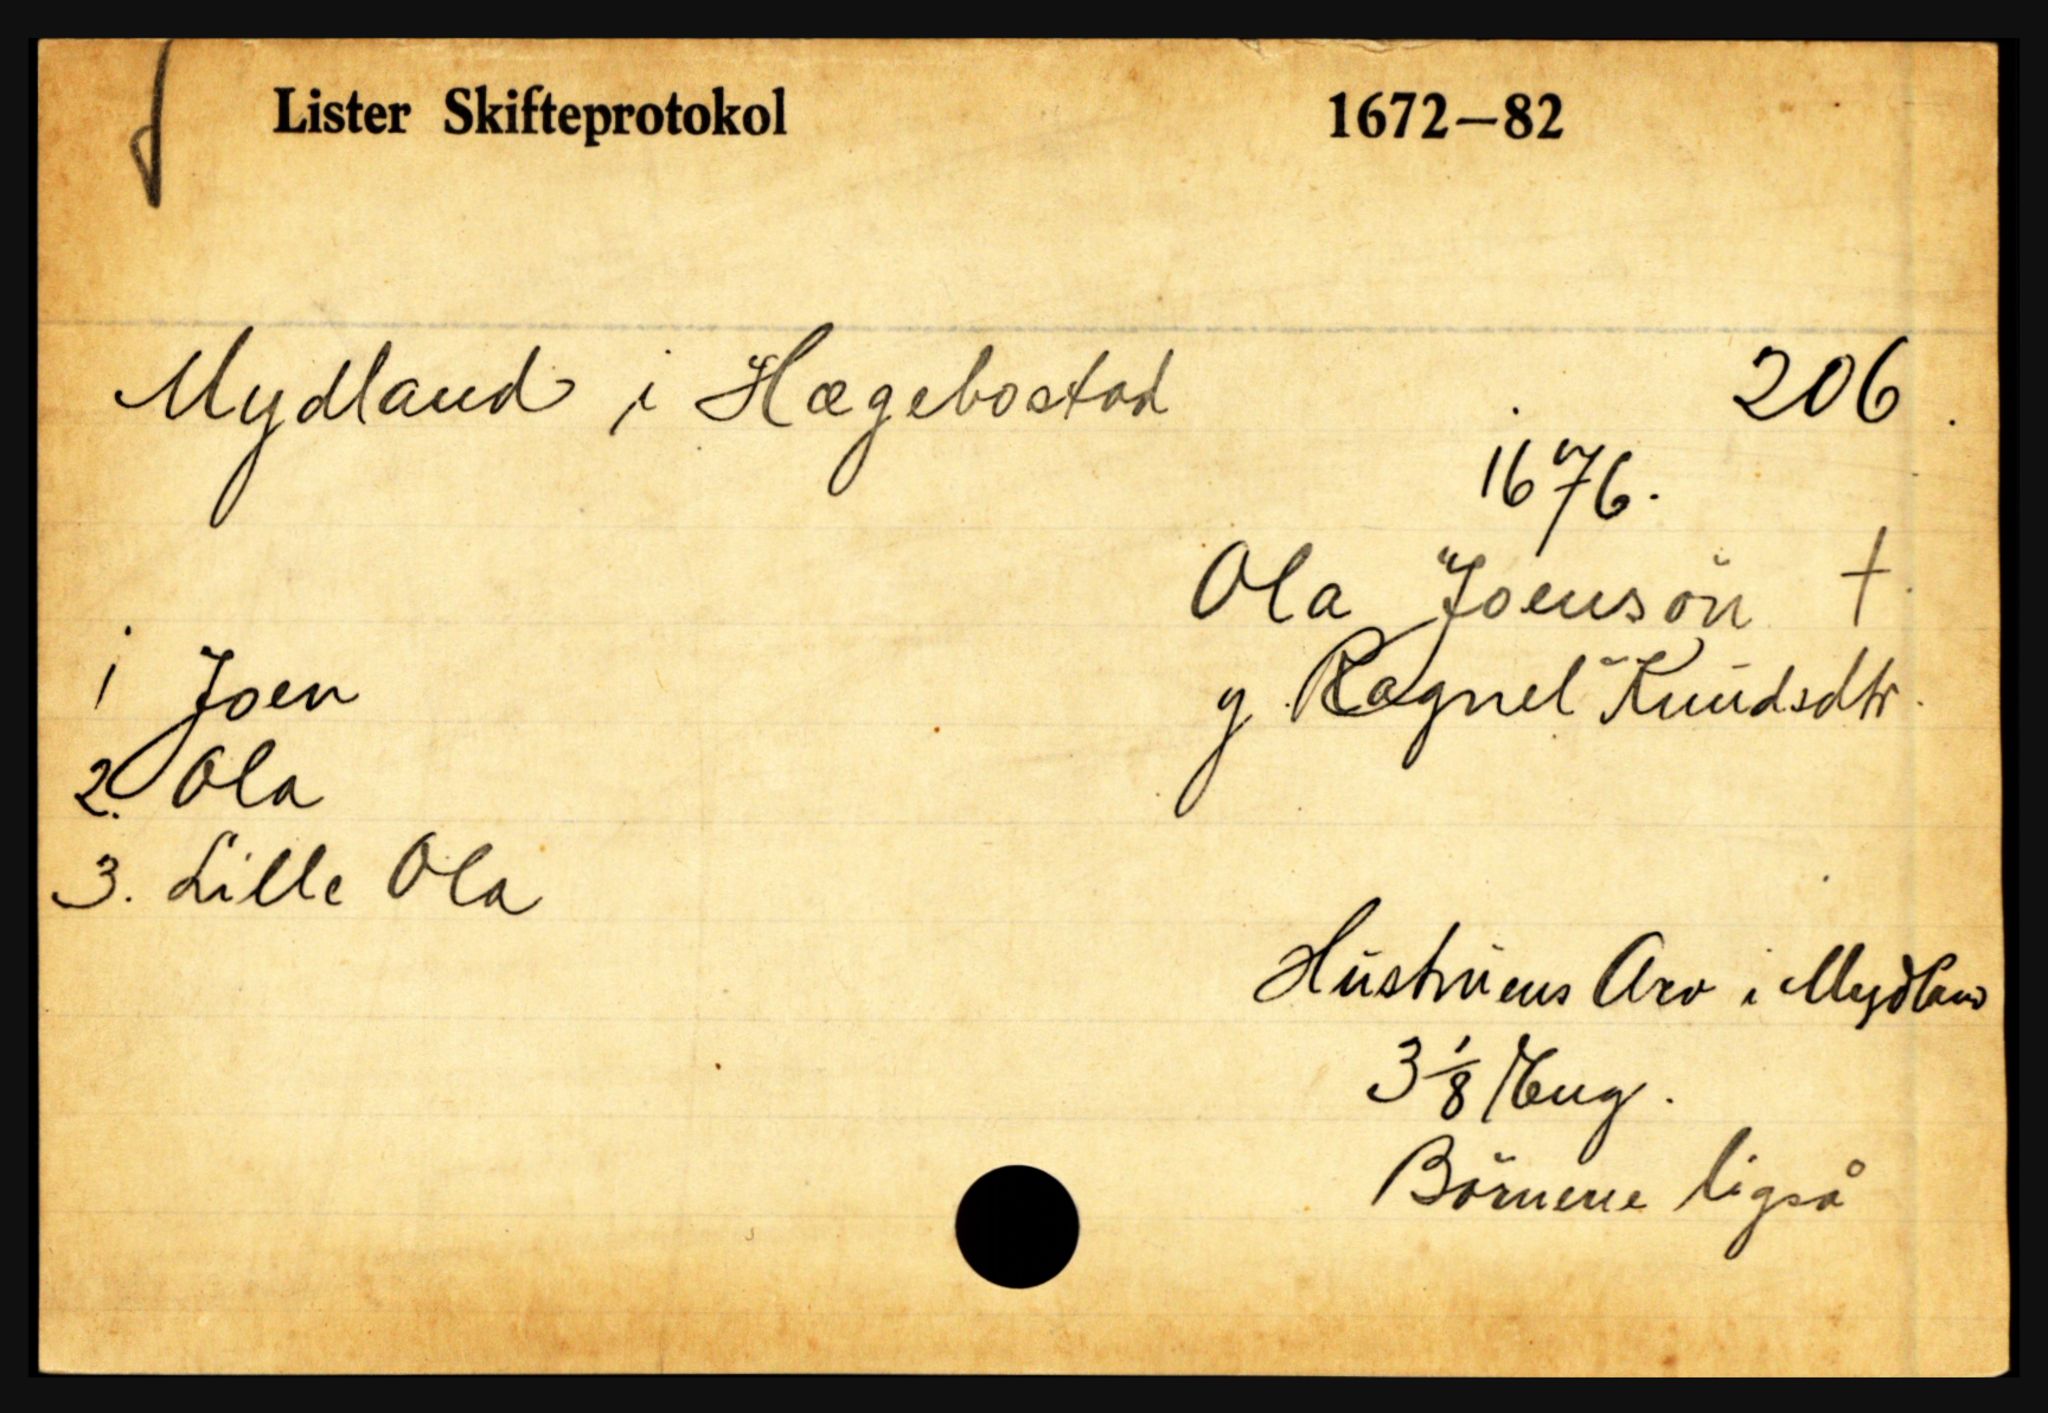 Lister Skifteprotokol 1672—82
Mydland i Hægebostad 206.
1676.
Ola Joensön †
g. Ragnel Knudsdtr.
1 Joen
2. Ola
3. Lille Ola
Hustruens Arv i Mydland
3 1/8 Eng.
Börnene ligså